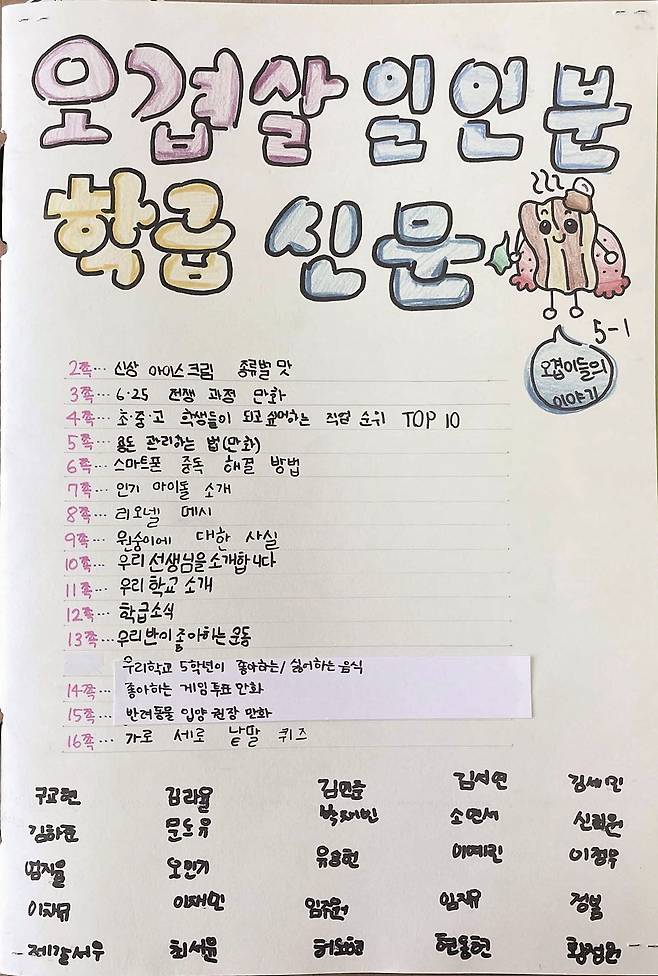 오겹살 일인분
학급 신문
5-1
오겹이들의
이야기
2쪽… 신상 아이스크림 종류별 맛
3쪽… 6·25 전쟁 과정 만화
4쪽… 초·중·고 학생들이 되고 싶어하는 직업 순위 TOP 10
5쪽… 용돈 관리하는 법(만화)
6쪽… 스마트폰 중독 해결 방법
7쪽… 인기 아이돌 소개
8쪽… 리오넬 메시
9쪽… 원숭이에 대한 사실
10쪽… 우리 선생님을 소개합니다
11쪽… 우리 학교 소개
12쪽… 학급소식
13쪽… 우리반이 좋아하는 운동
우리학교 5학년이 좋아하는/싫어하는 음식
14쪽… 좋아하는 게임 투표 만화
15쪽… 반려동물 입양 권장 만화
16쪽… 가로 세로 낱말 퀴즈
구교현 김라율 김민준 김서연 김세인
김하준 문도유 박재민 소연서 신희원
엄지율 오민기 유승현 이예린 이정우
이지유 이재민 임주원 임재유
제갈서우 최서윤 허도현 현용현 황정원